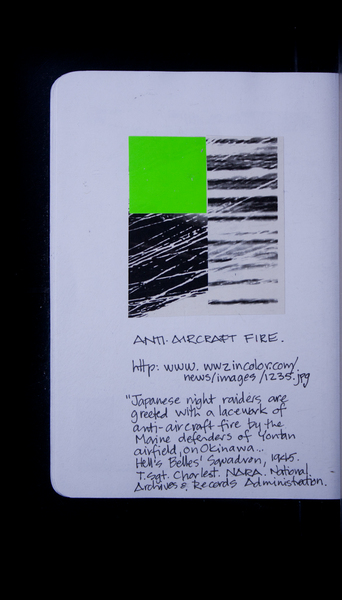 ANTI-AIRCRAFT FIRE.
http: www. ww2incolor.com/
news/images/1235.jpg
"Japanese night raiders are
greeted with a lacework of
anti-aircraft fire by the
Marine defenders of Yontan
airfield, on Okinawa...
Hell's Belles' Squadron, 1945.
T.Sgt. Charlest. NARA. National
Archives & Records Administration.